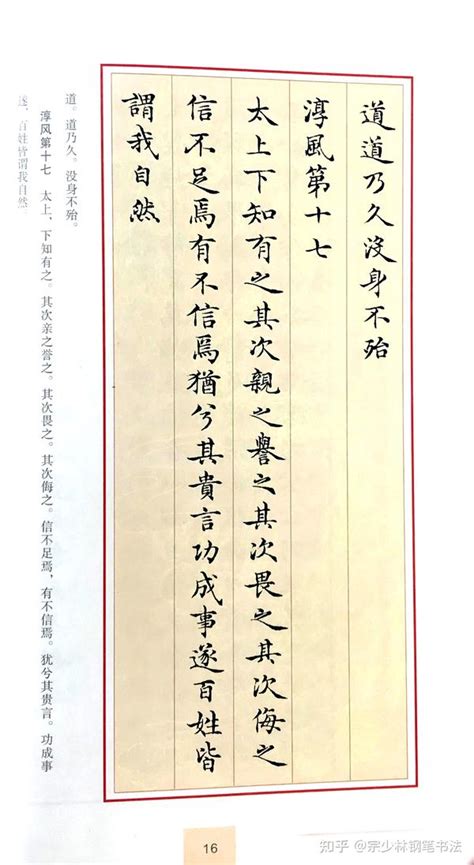 道道乃久没身不殆
淳風第十七
太上下知有之其次親之譽之其次畏之其次侮之
信不足焉有不信焉猶兮其貴言功成事遂百姓皆
謂我自然
道。道乃久。没身不殆。
淳风第十七 太上，下知有之。其次亲之誉之。其次畏之。其次侮之。信不足焉，有不信焉。犹兮其贵言。功成事
遂，百姓皆谓我自然
16
知乎 @宗少林钢笔书法